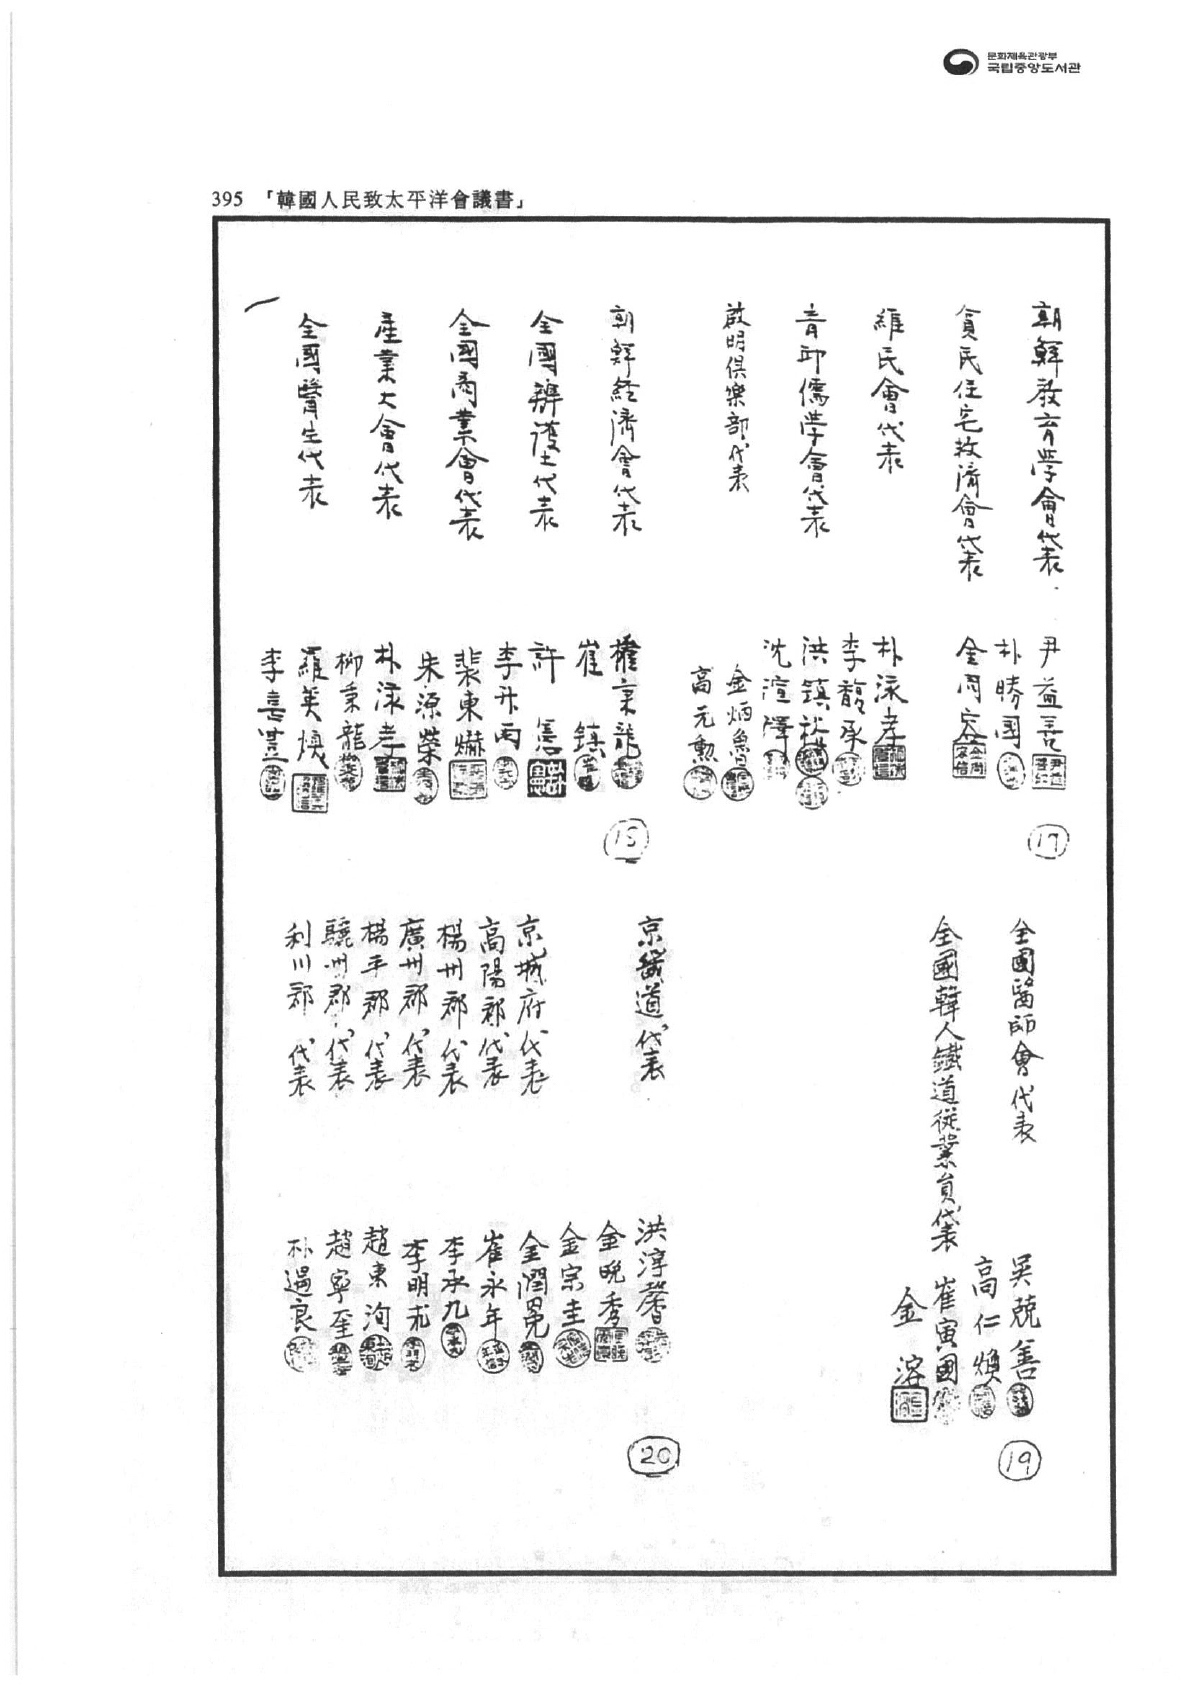 문화체육관광부
국립중앙도서관
395 「韓國人民致太平洋會議書」
朝鮮教育學會代表
尹益善
朴勝國
貧民住宅救濟會代表
金周容
維民會代表
朴泳孝
李馥承
青邱儒學會代表
洪鎮裕
沈澶澤
啟明俱樂部代表
金炳魯
高元勲
17
朝鮮経濟會代表
權秉龍
崔鎮
全國辯護士代表
許憲
李升雨
全國商業會代表
裴東爀
朱源榮
産業大會代表
朴泳孝
柳秉龍
全國醫生代表
羅英煥
李喜豊
18
全國醫師會代表
吳兢善
高仁煥
全國韓人鐵道從業員代表
崔寅國
金溶
19
京畿道代表
洪淳馨
金晩秀
金宗圭
京城府代表
全潤冕
高陽郡代表
崔永年
楊州郡代表
李承九
廣州郡代表
李明求
楊平郡代表
趙東洵
驪州郡代表
趙寧奎
利川郡代表
朴遇良
20